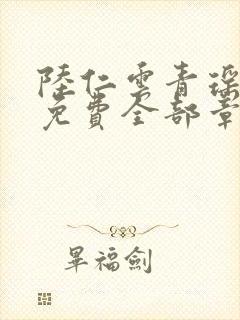 陸仁雲青瑤
免費全部章
畢福劍